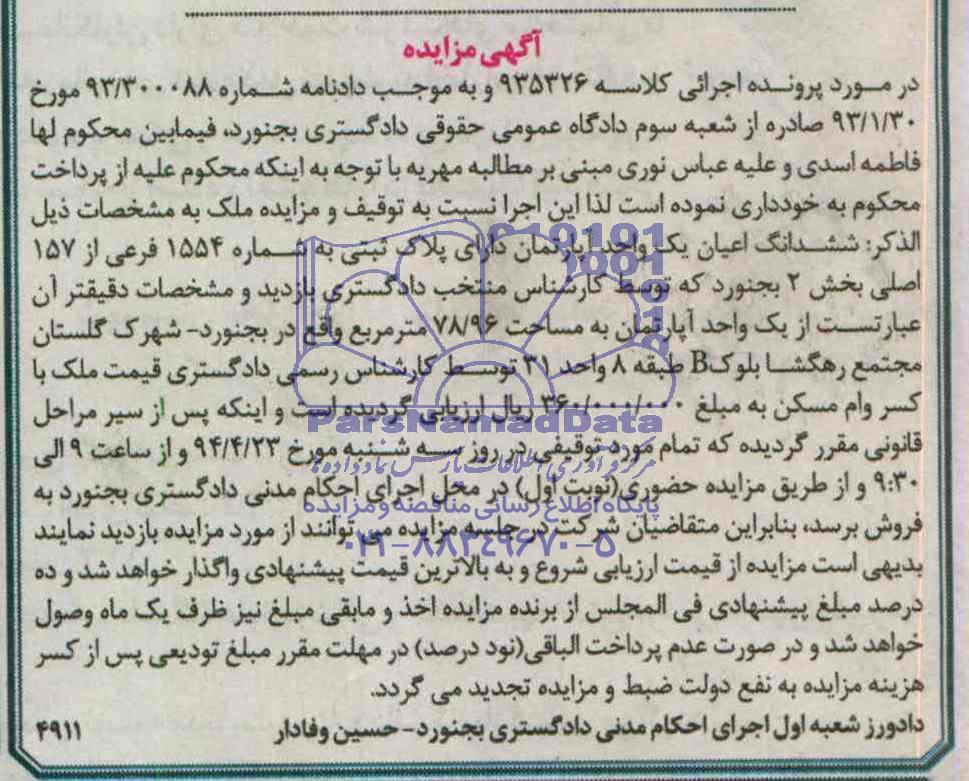 آگهی مزایده
در مورد پرونده اجرائی کلاسه ۹۳۵۳۲۶ و به موجب دادنامه شماره ۹۳/۳۰۰۰۸۸ مورخ
۹۳/۱/۳۰ صادره از شعبه سوم دادگاه عمومی حقوقی دادگستری بجنورد، فیمابین محکوم لها
فاطمه اسدی و علیه عباس نوری مبنی بر مطالبه مهریه با توجه به اینکه محکوم علیه از پرداخت
محکوم به خودداری نموده است لذا این اجرا نسبت به توقیف و مزایده ملک به مشخصات ذیل
الذکر: ششدانگ اعیان یک واحد آپارتمان دارای پلاک ثبتی به شماره ۱۵۵۴ فرعی از ۱۵۷
اصلی بخش ۲ بجنورد که توسط کارشناس منتخب دادگستری بازدید و مشخصات دقیقتر آن
عبارتست از یک واحد آپارتمان به مساحت ۷۸/۹۶ مترمربع واقع در بجنورد- شهرک گلستان
مجتمع رهگشا بلوک B طبقه ۸ واحد ۳۱ توسط کارشناس رسمی دادگستری قیمت ملک با
کسر وام مسکن به مبلغ ۳۶۰/۰۰۰/۰۰۰ ریال ارزیابی گردیده است و اینکه پس از سیر مراحل
قانونی مقرر گردیده که تمام مورد توقیفی در روز سه شنبه مورخ ۹۴/۴/۲۳ و از ساعت ۹ الی
۹:۳۰ و از طریق مزایده حضوری(نوبت اول) در محل اجرای احکام مدنی دادگستری بجنورد به
فروش برسد، بنابراین متقاضیان شرکت در جلسه مزایده می توانند از مورد مزایده بازدید نمایند
بدیهی است مزایده از قیمت ارزیابی شروع و به بالاترین قیمت پیشنهادی واگذار خواهد شد و ده
درصد مبلغ پیشنهادی فی المجلس از برنده مزایده اخذ و مابقی مبلغ نیز ظرف یک ماه وصول
خواهد شد و در صورت عدم پرداخت الباقی(نود درصد) در مهلت مقرر مبلغ تودیعی پس از کسر
هزینه مزایده به نفع دولت ضبط و مزایده تجدید می گردد.
دادورز شعبه اول اجرای احکام مدنی دادگستری بجنورد- حسین وفادار
۴۹۱۱
ParsNamadData
پایگاه اطلاع رسانی مناقصه و مزایده
۰۲۱-۸۸۳۴۹۶۷۰-۵